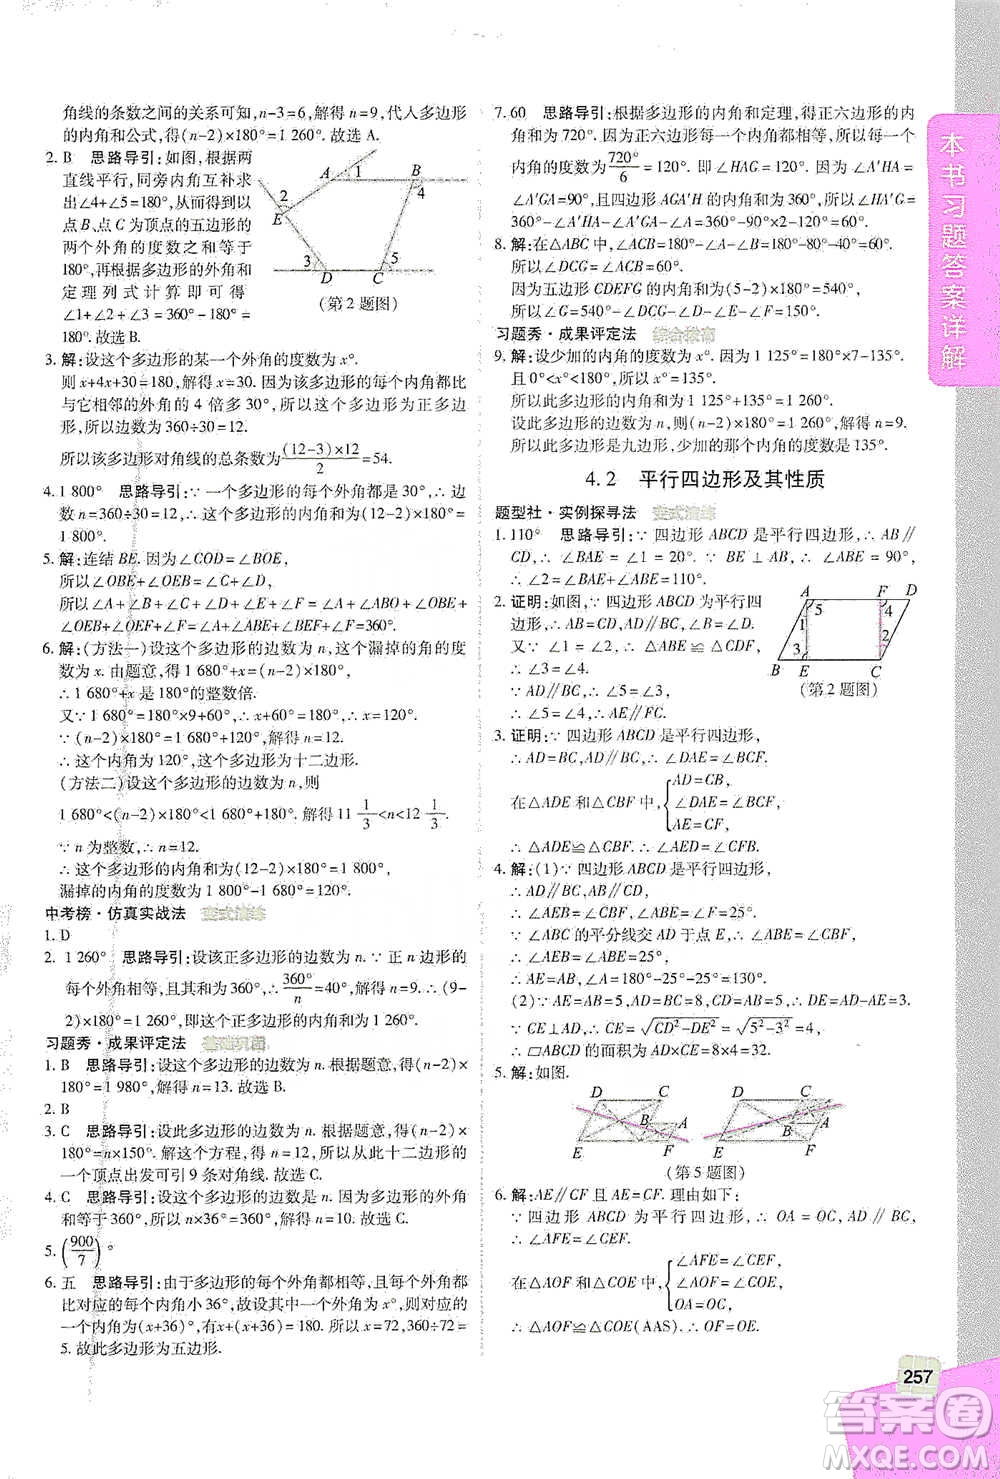 角线的条数之间的关系可知,n-3=6,解得 n=9,代人多边形
的内角和公式,得(n-2)×180°=1 260°.故选 A.
2. B 思路导引:如图,根据两
直线平行,同旁内角互补求
出∠4+∠5=180°,从而得到以
点B、点 C 为顶点的五边形的
两个外角的度数之和等于
180°.再根据多边形的外角和
定理列式计算即可得
∠1+∠2+∠3=360°-180°=
180°.故选 B.
A 1 B
4
2
E 3 5
D C
(第 2 题图)
3. 解:设这个多边形的某一个外角的度数为 x°.
则 x+4x+30=180,解得 x=30.因为该多边形的每个内角都比
与它相邻的外角的 4 倍多 30°,所以这个多边形为正多边形
的边数为 360÷30=12.
所以该多边形对角线的总条数为(12-3)×12/2=54.
4. 1 800° 思路导引:∵ 一个多边形的每个外角都是 30°,
∴ n=360÷30=12,则这个多边形的内角和为(12-2)×180°=
1 800°.
5. 解:连结 BE. 因为∠COD=∠BOE,
所以∠OBE+∠OEB=∠C+∠D,
所以∠A+∠B+∠C+∠D+∠E+∠F=∠A+∠ABO+∠OBE+
∠OEB+∠OEF+∠F=360°.
6. 解:(方法一)设这个多边形的边数为 n,这个漏掉的角的度
数为 x. 由题意,得 1 680°+x=(n-2)×180°,
∴ 1 680°+x 是 180°的整数倍.
又∵ 1 680°=180°×9+60°,∴ x+60°=180°,∴ x=120°.
∵ (n-2)×180°=1 680°+120°,解得 n=12.
∴ 这个内角为 120°,这个多边形为十二边形.
(方法二)设这个多边形的边数为 n,则
1 680°<(n-2)×180°<1 680°+180°.解得 11 1/3<n<12 1/3.
∵ n 为整数,∴ n=12.
∴ 这个多边形的内角和为(12-2)×180°=1 800°,
漏掉的内角的度数为 1 800°-1 680°=120°.
中考榜·仿真实战法 变式演练
1. D
2. 1 260° 思路导引:设该正多边形的边数为 n. ∵ 正 n 边形的
每个外角相等,且其和为 360°,∴ 360°/n=40°,解得 n=9.∴ (9-
2)×180°=1 260°,即这个正多边形的内角和为 1 260°.
习题秀·成果评定法 基础巩固
1. B 思路导引:设这个多边形的边数为 n. 根据题意,得(n-2)×
180°=1 980°,解得 n=13.故选 B.
2. B
3. C 思路导引:设此多边形的边数为 n. 根据题意,得(n-2)×
180°=n×150°.解这个方程,得 n=12.所以从此十二边形的
一个顶点出发可引 9 条对角线.故选 C.
4. C 思路导引:设这个多边形的边数为 n. ∵ 多边形的外角
和等于 360°,∴ n×36°=360°,∴ n=10.故选 C.
5. (900/7)°
6. 五 思路导引:由于多边形的每个外角都相等,且每个外角都
比对应的每个内角小 36°,故设其中一个外角为 x°,则相邻的
一个内角为(x+36)°,有 x+(x+36)=180.所以 x=72,360÷72=
5.故此多边形为五边形.
7. 60 思路导引:根据多边形的内角和定理,可得正六边形的内
角和为 720°.因为正六边形的每一个内角都相等,所以每个
内角的度数为720°/6=120°,即∠HAG=120°.又∠A'HA=
∠A'GA=90°,且四边形 AGA'H 的内角和为 360°,所以∠GA'H=
360°-∠A'HA-∠A'GA-∠HAG=360°-2×90°-120°=60°.
8. 解:在△ABC 中,∠ACB=180°-∠A-∠B=180°-55°-
所以∠DCG=∠ACB=
因为五边形 CDEFG 的内角和为(5-2)×180°=540°.
所以∠D+∠E+∠F+∠G=540°-
习题秀·成果评定法 综合教育
9. 解:设少加的内角的度数为 x°. 因为 1 125°=180°×7-135°.
且 0°<x°<180°,所以 x°=135°.
所以此多边形的内角和为 1 125°+135°=1 260°.
设此多边形的边数为 n,则(n-2)×180°=1 260°,解得 n=9.
所以此多边形是九边形,少加的那个内角的度数是 135°.
4.2 平行四边形及其性质
题型社·实例探寻法 变式演练
1. 110° 思路导引:∵ 四边形 ABCD 是平行四边形,∴ AB∥
CD,∴ ∠BAE=∠1=20°. ∵ BE⊥AB,∴ ∠ABE=90°,
∴ ∠2=∠BAE+∠ABE=110°.
2. 证明:如图,∵ 四边形 ABCD 为平行四
边形,∴ AB=CD,∠B=∠D.
又∵ ∠1=∠2,∴ △ABE≌△CDF,
∴ ∠3=∠4.
∵ AD∥BC,∴ ∠3=∠5,
∴ ∠5=∠4,∴ AE∥FC.
A F D
5 4
1
2
3
B E C
(第 2 题图)
3. 证明:∵ 四边形 ABCD 是平行四边形,
∴ AD=BC,AD∥BC,∴ ∠DAE=∠BCF.
在△ADE 和△CBF 中,{AD=CB,
∠DAE=∠BCF,
AE=CF,
∴ △ADE≌△CBF. ∴ ∠AED=∠CFB.
4. 解:(1)∵ 四边形 ABCD 是平行四边形,
∴ ∠AEB=∠EBF,∠D=∠ABC=50°.
∵ ∠ABC 的平分线交 AD 于点 E,∴ ∠ABE=∠EBF=25°,
∴ ∠AEB=∠ABE=25°.
∴ AE=AB=5.
(2)∵ AE=AB=5,AD=BC=8,CD=AB=5,∴ DE=AD-AE=3.
∵ CE⊥AD,∴ CE=√CD²-DE²=√5²-3²=4,
∴ ▱ABCD 的面积=AD·CE=8×4=32.
5. 解:如图.
D C
B A
E F
D C
B A
E F
(第 5 题图)
6. 解:AE∥CF 且 AE=CF. 理由如下:
∵ 四边形 ABCD 为平行四边形,∴ OA=OC,AD∥BC,
∴ ∠AFE=∠CEF.
在△AOF 和△COE 中,{∠AFE=∠CEF,
∠AOF=∠COE,
OA=OC,
∴ △AOF≌△COE(AAS),∴ OF=OE.
本书习题答案详解
257
答案圈
MXQE.COM